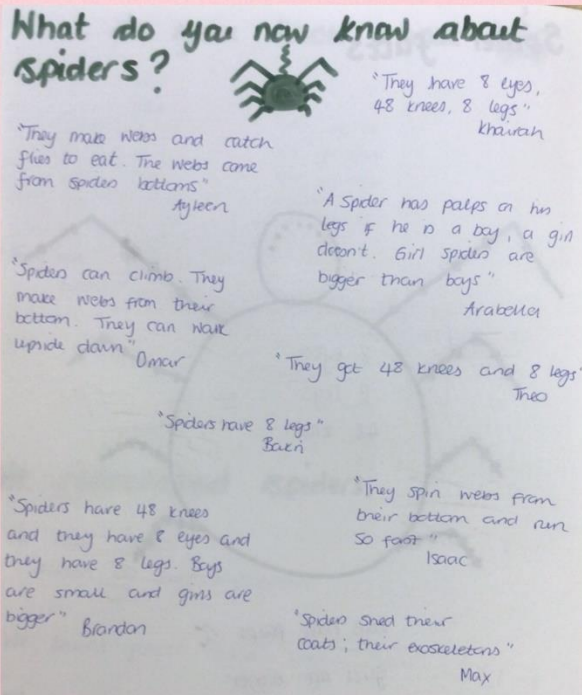 What do you now know about
spiders?
"They have 8 eyes,
48 knees, 8 legs"
Khairah
"They make webs and catch
flies to eat. The webs come
from spiders bottoms"
Ayleen
"A Spider has palps on his
legs if he is a boy, a girl
doesn't. Girl spiders are
bigger than boys"
Arabella
"Spiders can climb. They
make webs from their
bottom. They can walk
upside down"
Omar
"They got 48 knees and 8 legs"
Theo
"Spiders have 8 legs"
Bakri
"They spin webs from
their bottom and run
so fast"
Isaac
"Spiders have 48 knees
and they have 8 eyes and
they have 8 legs. Boys
are small and girls are
bigger"
Brandon
"Spiders shed their
coats; their exoskeletons"
Max